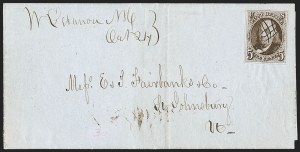 W Lebanon Me
Oct 24
Messrs E & T Fairbanks & Co.
St Johnsbury
Vt
5 5